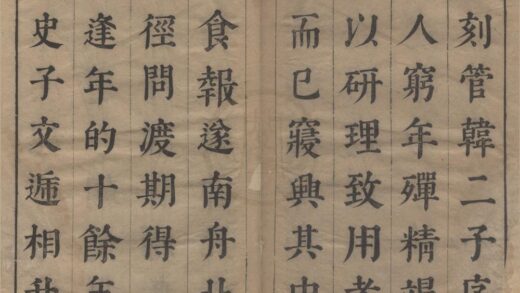 刻管韓二子序
人窮年殫精竭
以研理致用者
而已寢興其中
食報遂南舟北
徑問渡期得
逢年的十餘年
史子文遞相